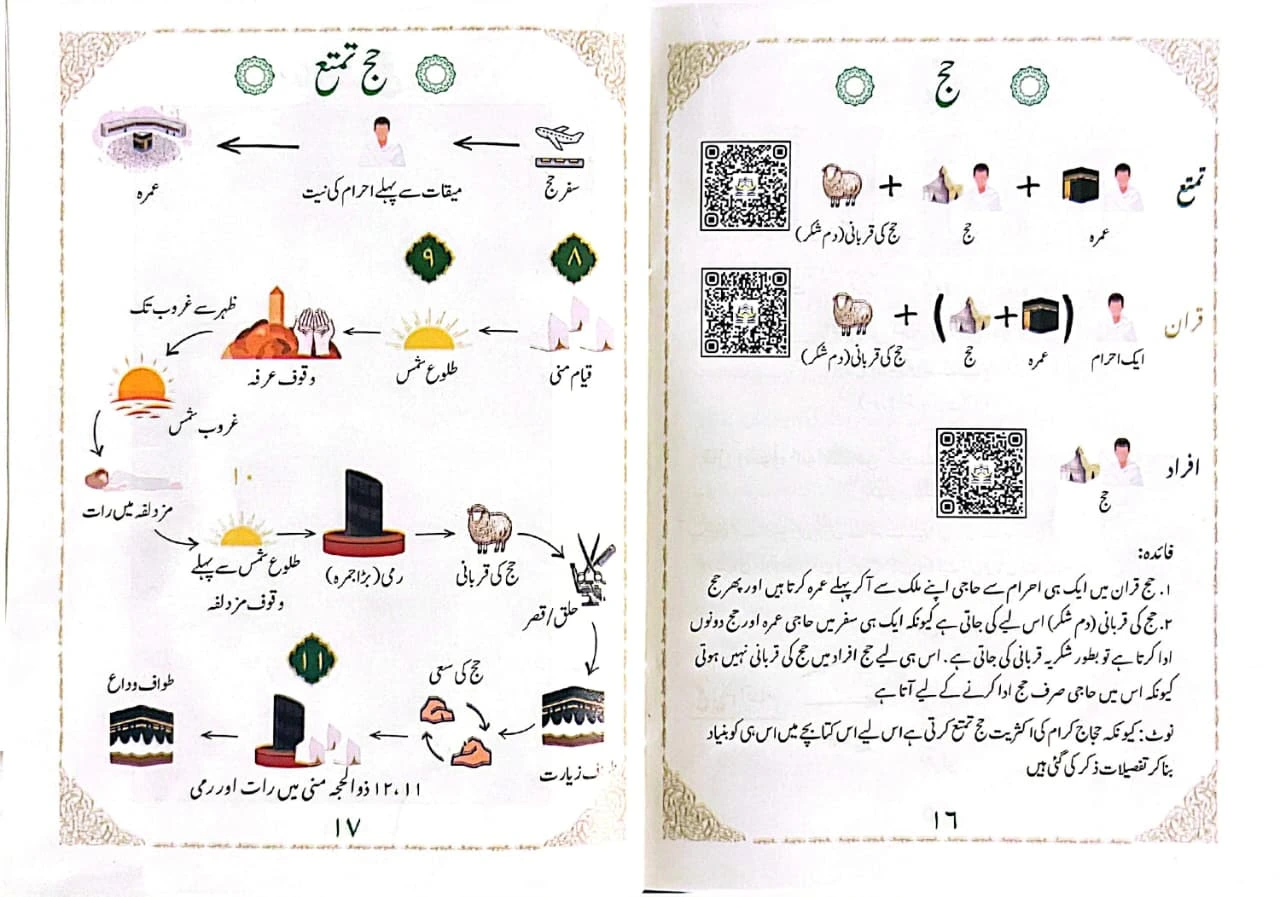 حج
تمتع
عمرہ
+
حج
+
حج کی قربانی (دم شکر)
قران
ایک احرام
(
عمرہ
+
حج
)
+
حج کی قربانی (دم شکر)
افراد
حج
فائدہ:
۱. حج قران میں ایک ہی احرام سے حاجی اپنے ملک سے آکر پہلے عمرہ کرتا ہیں اور پھر حج
۲. حج کی قربانی (دم شکر) اس لیے کی جاتی ہے کیونکہ ایک ہی سفر میں حاجی عمرہ اور حج دونوں
ادا کرتا ہے تو بطور شکریہ قربانی کی جاتی ہے. اس ہی لیے حج افراد میں حج کی قربانی نہیں ہوتی
کیونکہ اس میں حاجی صرف حج ادا کرنے کے لیے آتا ہے
نوٹ: کیونکہ حجاج کرام کی اکثریت حج تمتع کرتی ہے اس لیے اس کتابچے میں اس ہی کو بنیاد
بنا کر تفصیلات ذکر کی گئی ہیں
١٦
حج تمتع
سفر حج
میقات سے پہلے احرام کی نیت
عمرہ
٨
٩
قیام منی
طلوع شمس
وقوف عرفہ
ظہر سے غروب تک
غروب شمس
مزدلفہ میں رات
١٠
طلوع شمس سے پہلے
وقوف مزدلفہ
رمی (بڑا جمرہ)
حج کی قربانی
حلق / قصر
طواف زیارت
حج کی سعی
١١
١١، ١٢ ذوالحجہ منی میں رات اور رمی
طواف وداع
١٧